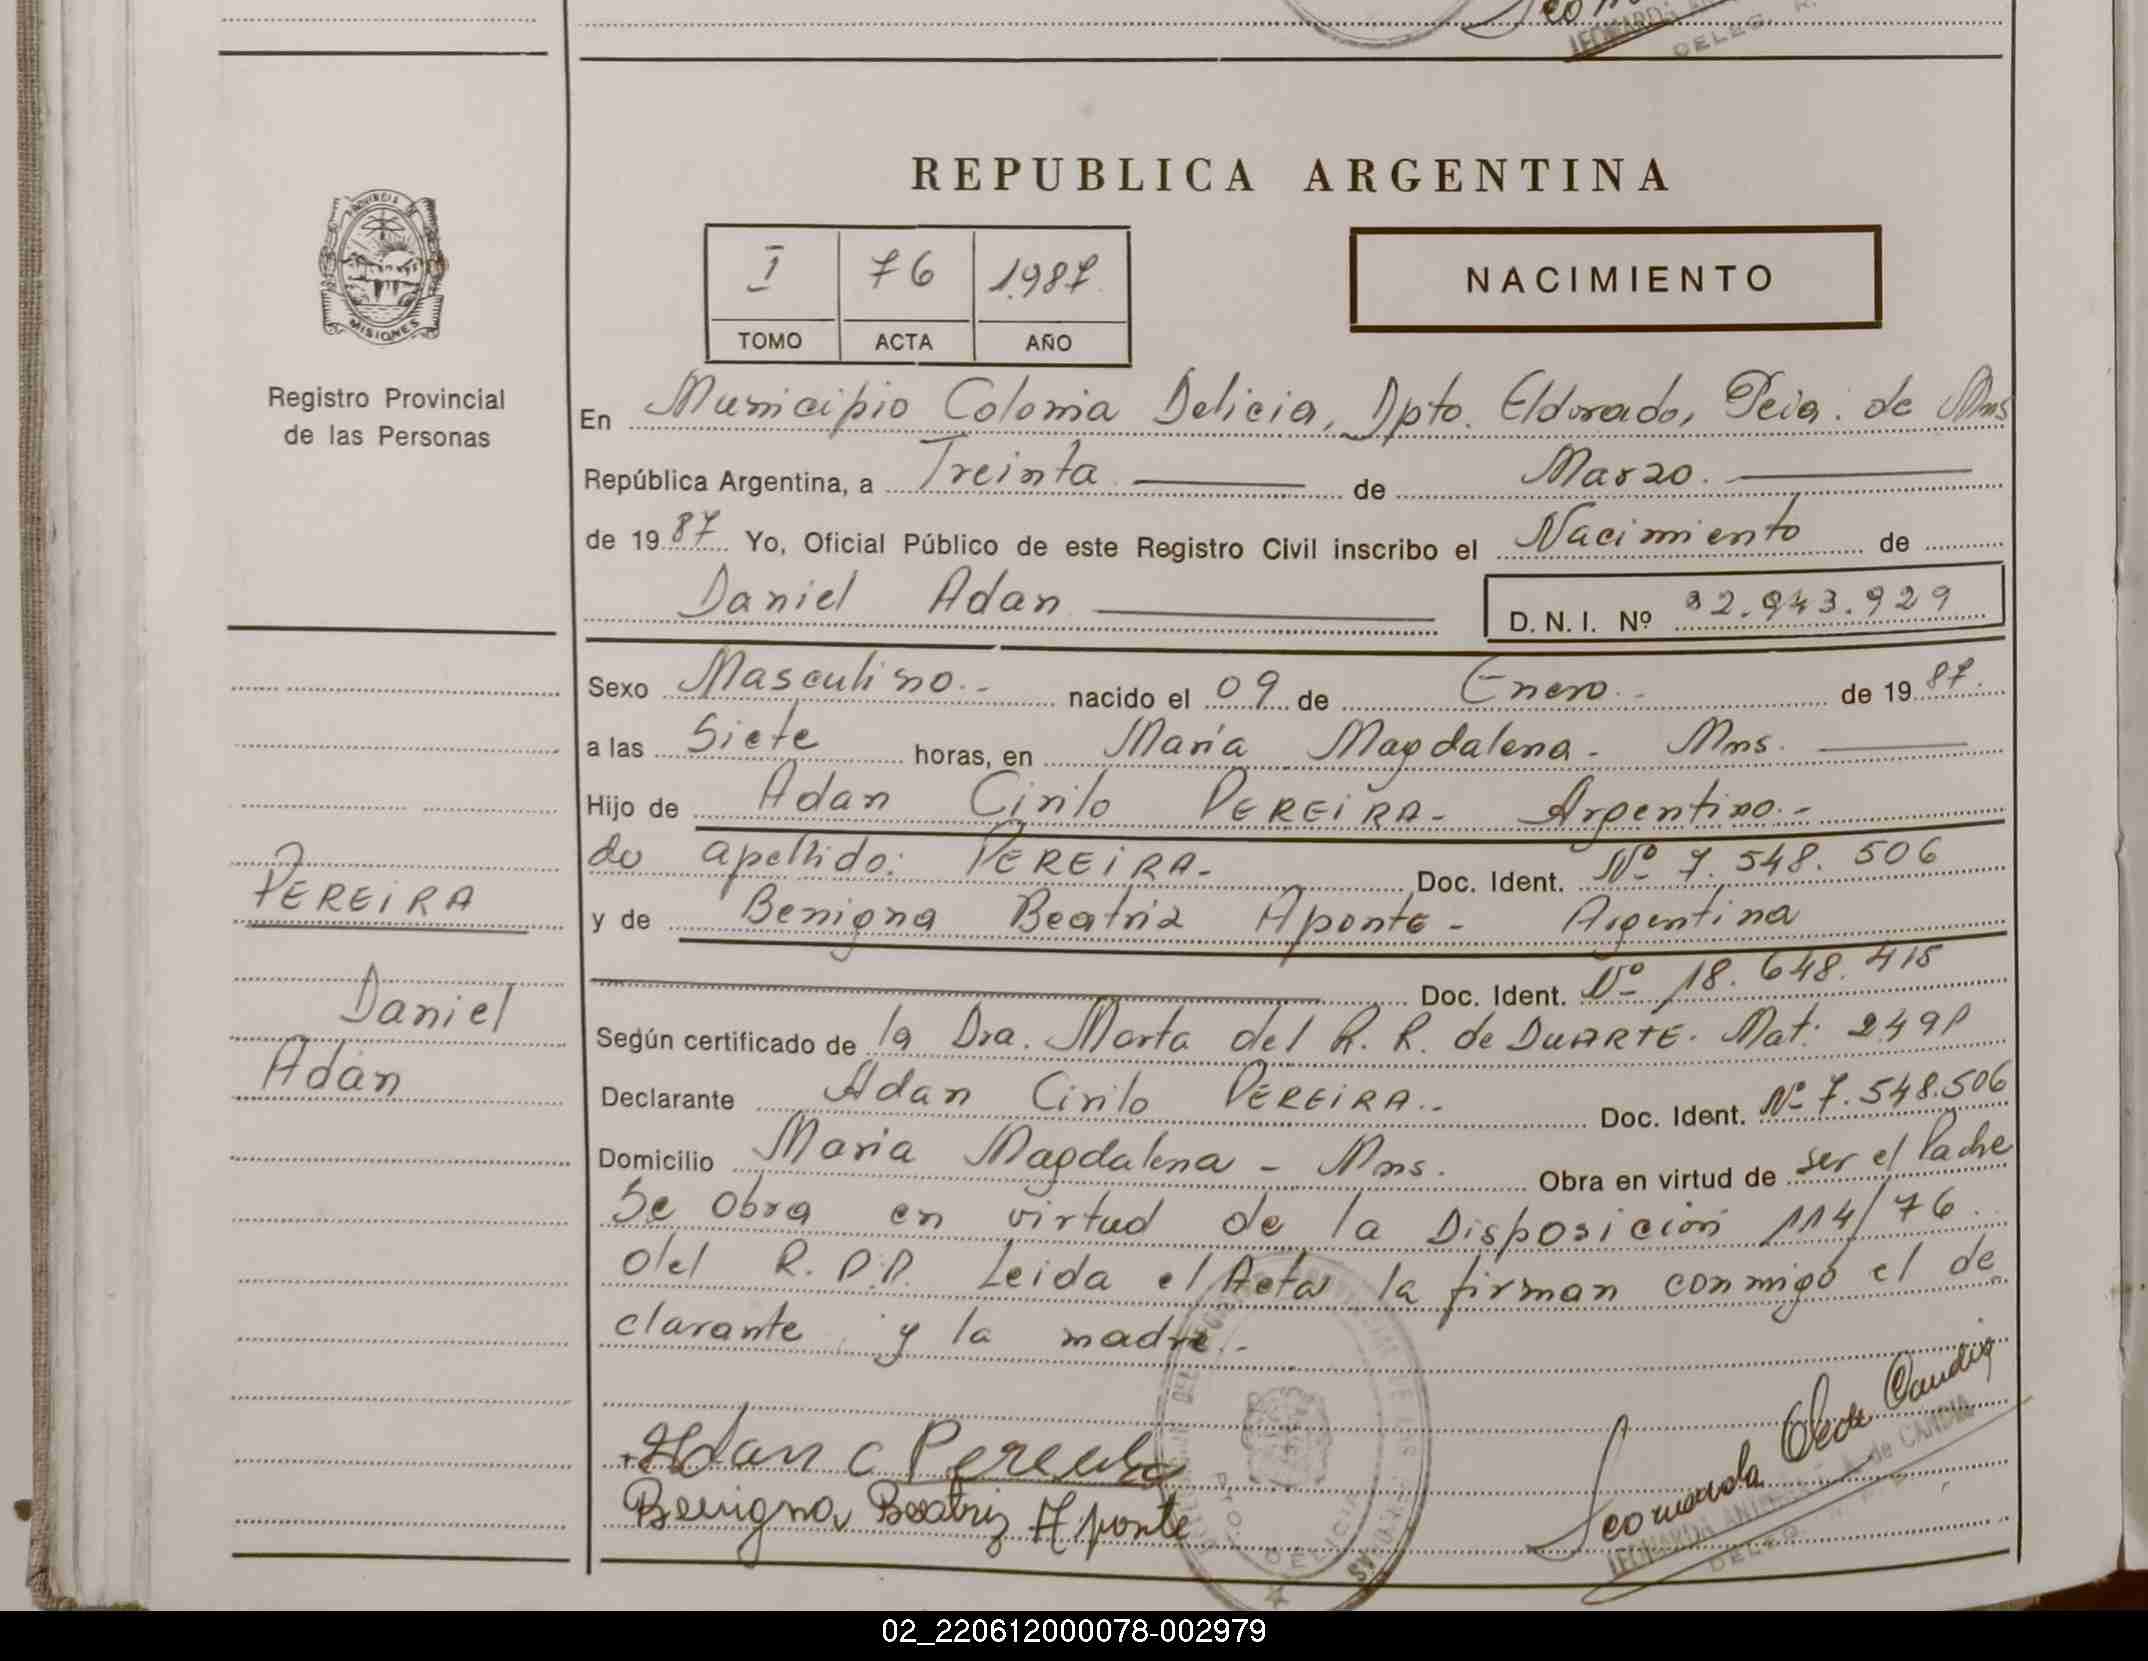 REPUBLICA ARGENTINA
PROVINCIA DE
MISIONES
Registro Provincial
de las Personas
I 76 1.987
TOMO ACTA AÑO
NACIMIENTO
En Municipio Colonia Delicia, Dpto. Eldorado, Pcia. de Mns
República Argentina, a Treinta de Marzo.
de 1987 Yo, Oficial Público de este Registro Civil inscribo el Nacimiento de
Daniel Adan D. N. I. Nº 32.943.929
Sexo Masculino.- nacido el 09 de Enero.- de 1987.
a las Siete horas, en María Magdalena - Mns.
Hijo de Adan Cirilo PEREiRA- Argentino.-
de apellido: PEREiRA- Doc. Ident. Nº 7.548.506
y de Benigna Beatriz Aponte - Argentina
Doc. Ident. Nº 18.648.415
Según certificado de la Dra. Marta del R. R. de DUARTE. Mat:
Declarante Adan Cirilo PEREiRA.- Doc. Ident. Nº 7.548.506
Domicilio Maria Magdalena - Mns. Obra en virtud de ser el Padre
Se obra en virtud de la Disposición 114/76.
del R.P.P. Leida el Acta la firman conmigo el de
clarante y la madre.-
PEREiRA
Daniel
Adán
Adan C Pereira
Benigna Beatriz Aponte
Leonarda Ojeda Candia
LEONARDA de CANDIA
DELEG.
DELICIA
02_220612000078-002979